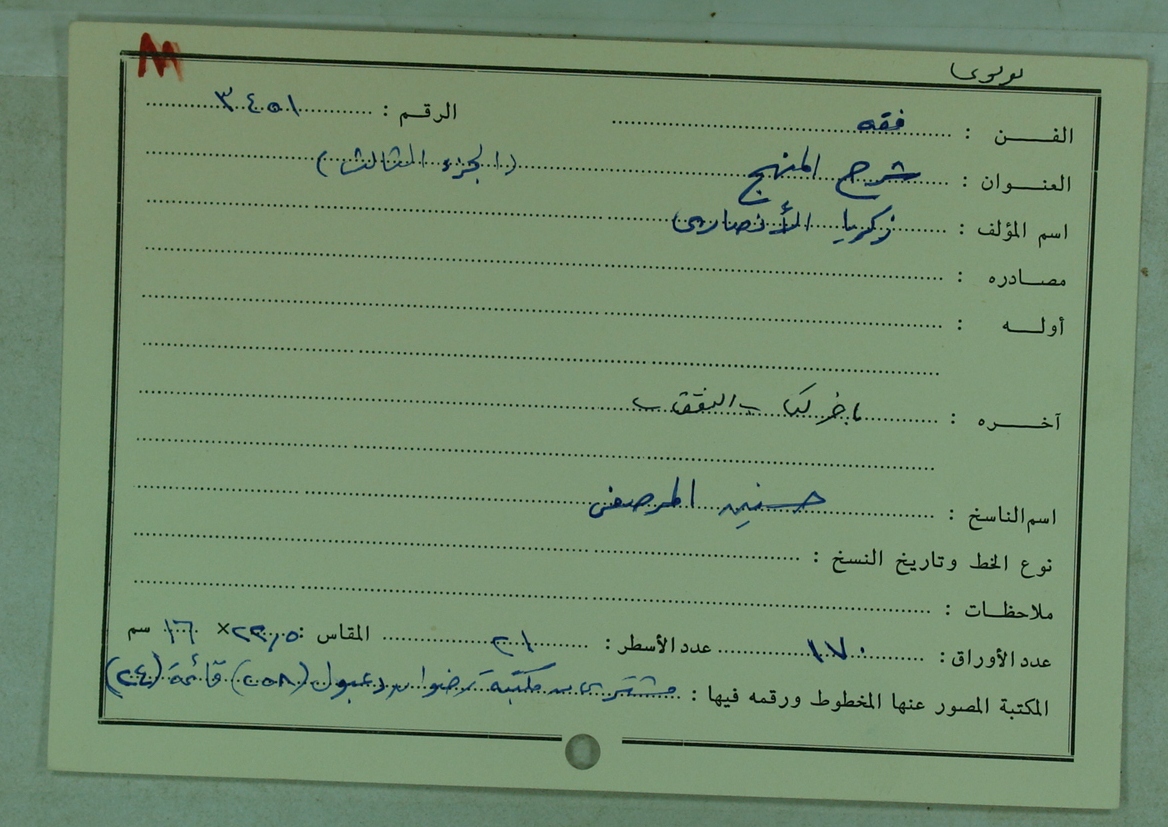 الفن : فقه الرقم : ٣٤٥١
العنوان : شرح المنهج (الجزء الثالث)
اسم المؤلف : زكريا الأنصارى
مصادره :
أوله :
آخره : بآخر كتاب النفقات
اسم الناسخ : حسنين المرصفى
نوع الخط وتاريخ النسخ :
ملاحظات :
عدد الأوراق : ١٧٠ عدد الأسطر : ٢١ المقاس : ٢٣,٥ × ١٦ سم
المكتبة المصور عنها المخطوط ورقمه فيها : مشترى من مكتبة رضوان دعبول (٢٥٨) قائمة (٢٤)